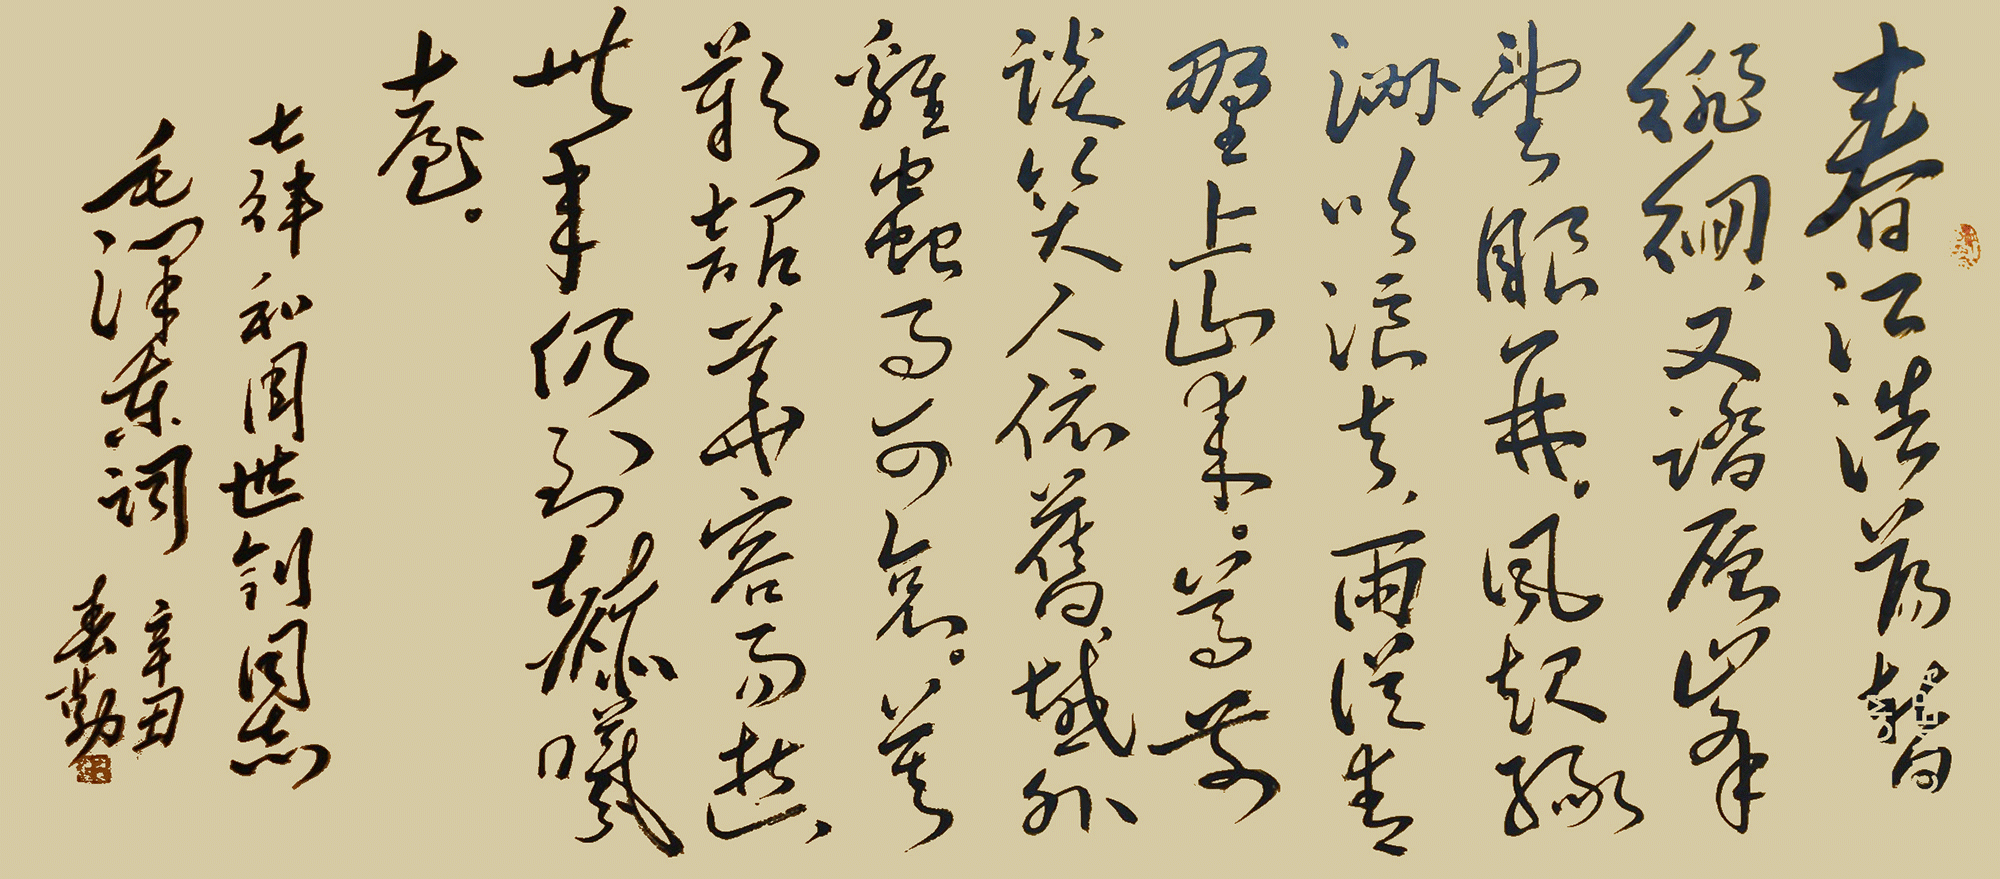 春江浩荡暫
徘徊，又踏层峰
望眼開。風起緑
洲吹浪去，雨從青
野上山来。尊前
談笑人依舊，域外
雞蟲事可哀。莫
歎韶華容易逝，
卅年仍到赫曦
臺。
七律 和周世钊同志
毛泽东词
辛丑
春勤